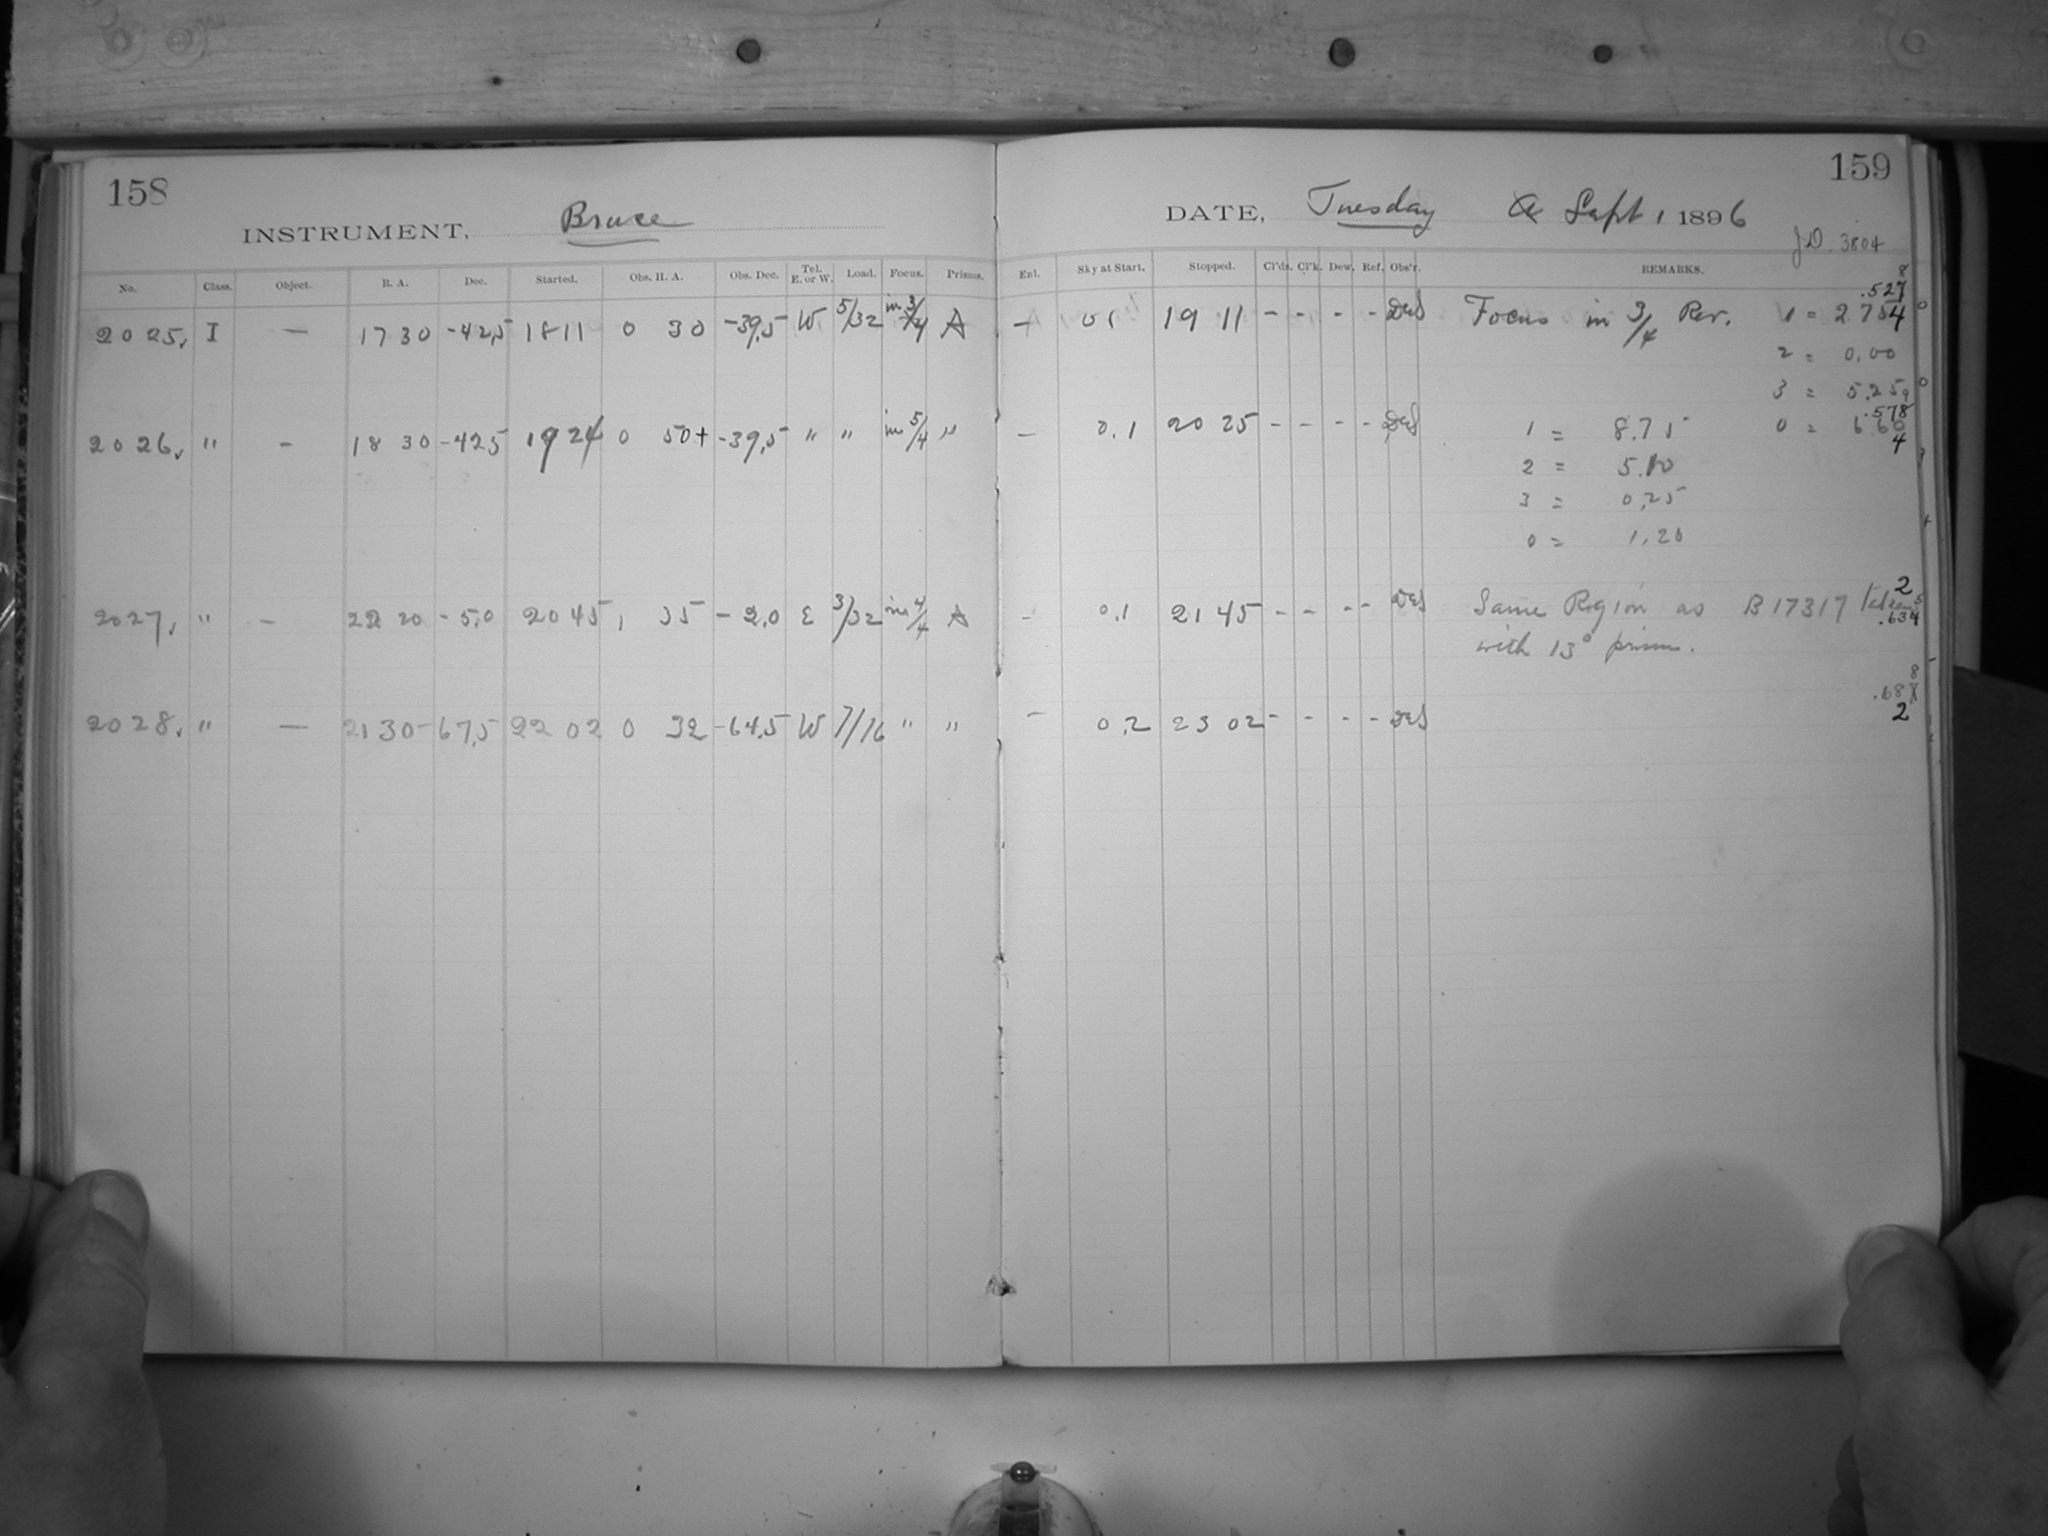 158
INSTRUMENT, Bruce
No. Class. Object. R. A. Dec. Started. Obs. H. A. Obs. Dec. Tel. E. or W. Load. Focus. Prisms.
2025. I — 17 30 -42.5 18 11 0 30 -39.5 W 5/32 in 3/4 A
2026. " - 18 30 -42.5 19 24 0 50+ -39.5 " " in 5/4 "
2027. " - 22 20 -5.0 20 45 1 35 -2.0 E 3/32 in 4/4 A
2028. " — 21 30 -67.5 22 02 0 32 -64.5 W 7/16 " "
159
DATE, Tuesday Sept 1 1896
JD. 3804
Enl. Sky at Start. Stopped. Cl'ds. Cl'k. Dew. Ref. Obs'r. REMARKS.
— 01 19 11 - - - - DeS Focus in 3/4 Rev. 1 = 2.75
.527
8
4
2 = 0.00
3 = 5.25
— 0.1 20 25 - - - - DeS 1 = 8.75 0 = 6.60
.578
4
2 = 5.10
3 = 0.25
0 = 1.20
- 0.1 21 45 - - - - DeS Same Region as B 17317 taken
2
.634
with 13° prism.
- 0.2 23 02 - - - - DeS
8
2